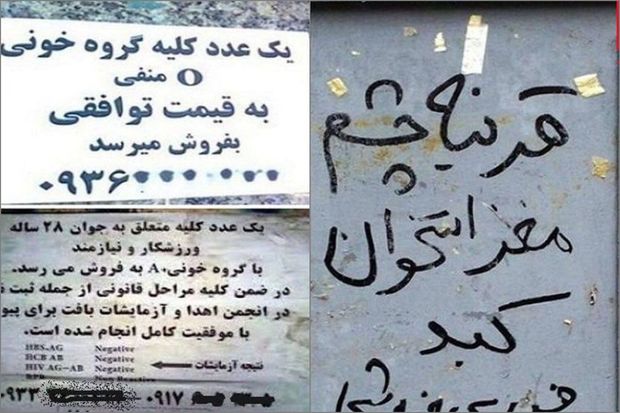 یک عدد کلیه گروه خونی
O منفی
به قیمت توافقی
بفروش میرسد
۰۹۳۶
یک عدد کلیه متعلق به جوان ۲۸ ساله
ورزشکار و نیازمند
با گروه خونی A+ به فروش می رسد.
در ضمن کلیه مراحل قانونی از جمله ثبت
در انجمن اهدا و آزمایشات بافت برای
با موفقیت کامل انجام شده است.
HBS.AG Negative
HCB AB Negative
HIV AG-AB Negative
نتیجه آزمایشات
۰۹۳۳ ۰۹۱۷
قرنیه چشم
مغز استخوان
کبد